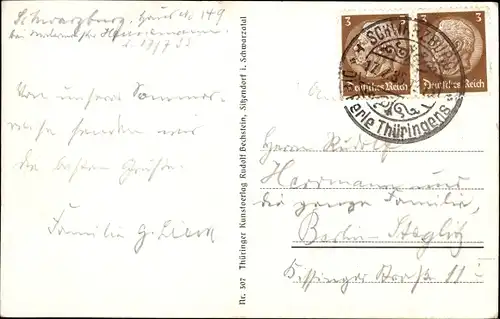 Schwarzburg, Haus No 149
bei Malermeister
d. 13/7 33
Von unserer Sommer-
reise senden wir
die besten Grüße.
Familie G. Lieck
Nr. 507 Thüringer Kunstverlag Rudolf Bechstein, Sitzendorf i. Schwarzatal
3 3
Deutsches Reich Deutsches Reich
SCHWARZBURG
Perle Thüringens
Herrn Rudolf
Herrmann und
die ganze Familie,
Berlin-Steglitz
Kissinger Straße 11